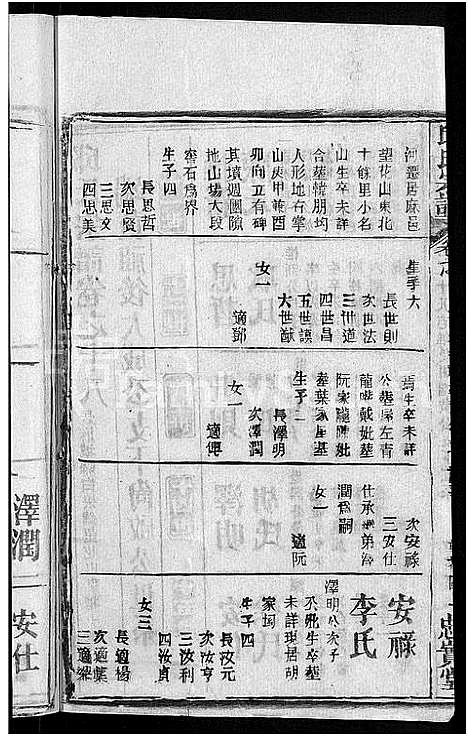 河疊居麻邑
望花山東北
十餘里小名
山生卒未詳
合塟情朋坳
人形地右掌
山庚甲兼酉
卯向立有碑
其墳週圍院
地山場大段
窖石爲界
生子四
長思哲
次思賢
三思文
四思美
生子六
長世則
次世法
三世道
四世昌
五世謨
六世猷
女一
適鄧
生卒未詳
公塟屋左青
龍嘴戴妣塟
阮家隴陳妣
塟葉家屋基
生子二
長澤明
次澤潤
女一
適傅
次安祿
三安仕
仕承繼弟澤
潤爲嗣
女一
適阮
安祿
李氏
澤明公次子
公妣生卒塟
未詳現居胡
家坳
生子四
長汝元
次汝亨
三汝利
四汝貞
女三
長適楊
次適葉
三適羅
澤潤
安仕